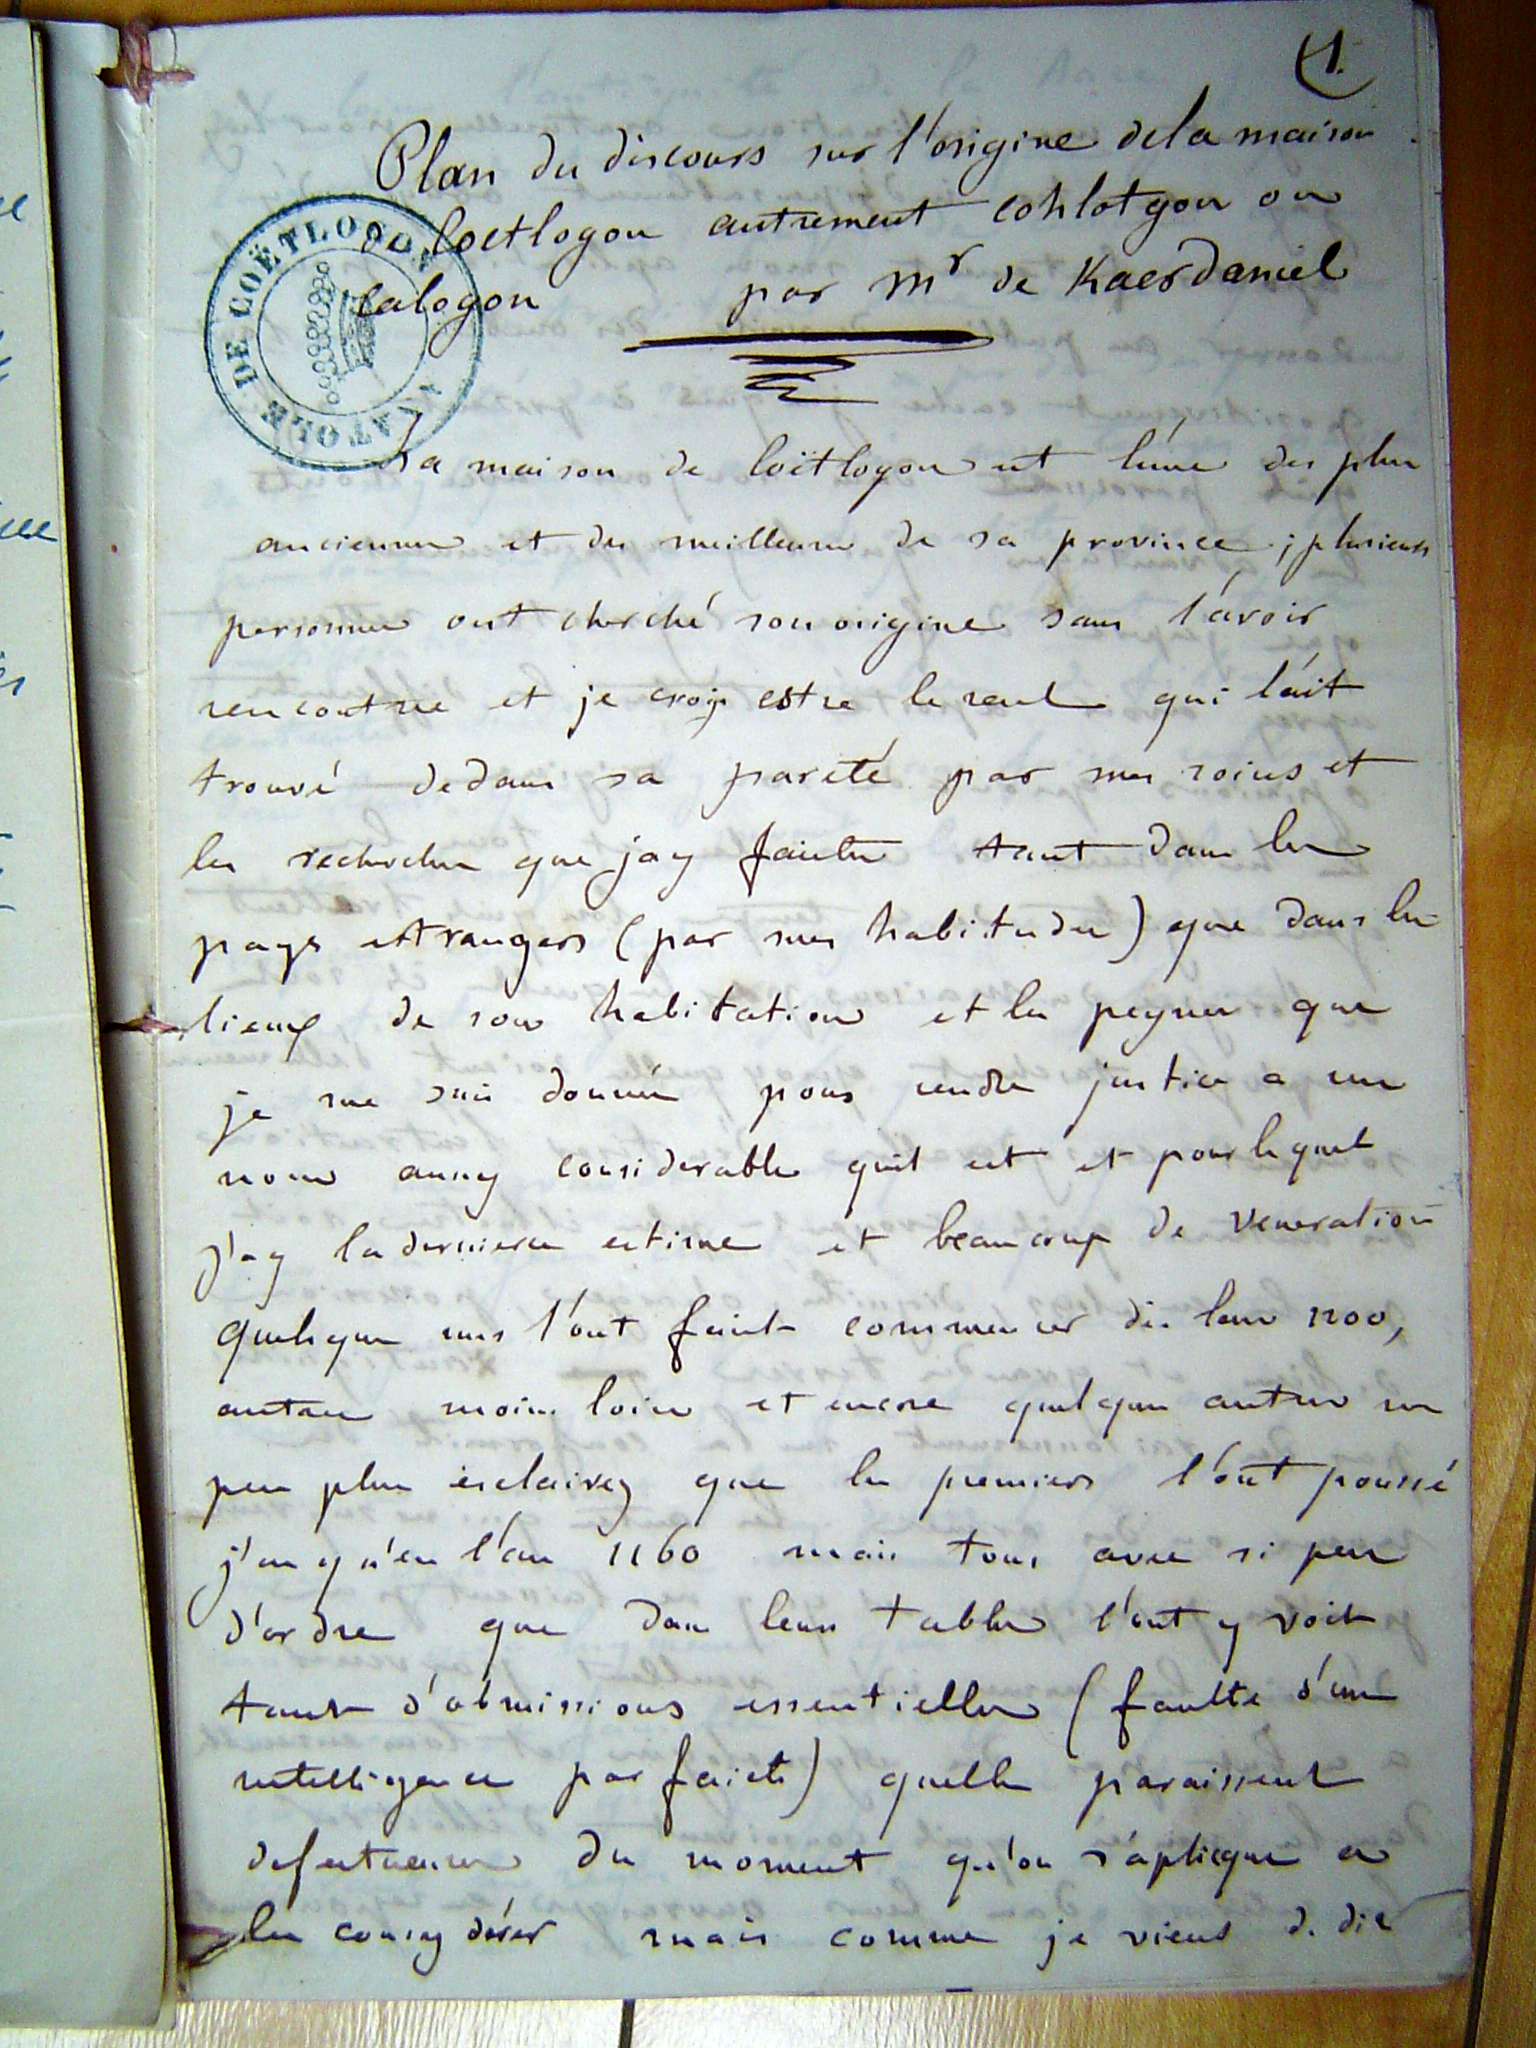 1.
Plan du discours sur l'origine dela maison
de Coetlogon autrement cohlotgon ou
Calogon par Mr de Kaerdaniel
DE COËTLOGON
La maison de Coëtlogon est l'une des plus
anciennes et des meilleures de sa province ; plusieurs
personnes ont cherché son origine sans l'avoir
rencontrée et je croy estre le seul qui l'ait
trouvé dedans sa pureté par mes soins et
les recherches que jay faictes tant dans les
pays estrangers (par mes habitudes) que dans les
lieux de son habitation et les peynes que
je me suis données pour rendre justice a un
nom aussy considerable quil est et pour lequel
j'ay la derniere estime et beaucoup de veneration
quelques uns l'ont faict commencer dès l'an 1200,
autres moins loin et encore quelques autres un
peu plus esclairez que les premiers l'ont poussé
jusqu'en l'an 1160 mais tous avec si peu
d'ordre que dans leurs tables l'ont y voit
tant d'obmissions essentielles (faulte d'une
intelligence parfaicte) quelles paraissent
defectueuses du moment qu'on s'aplicque a
les consydérer mais comme je viens de dire